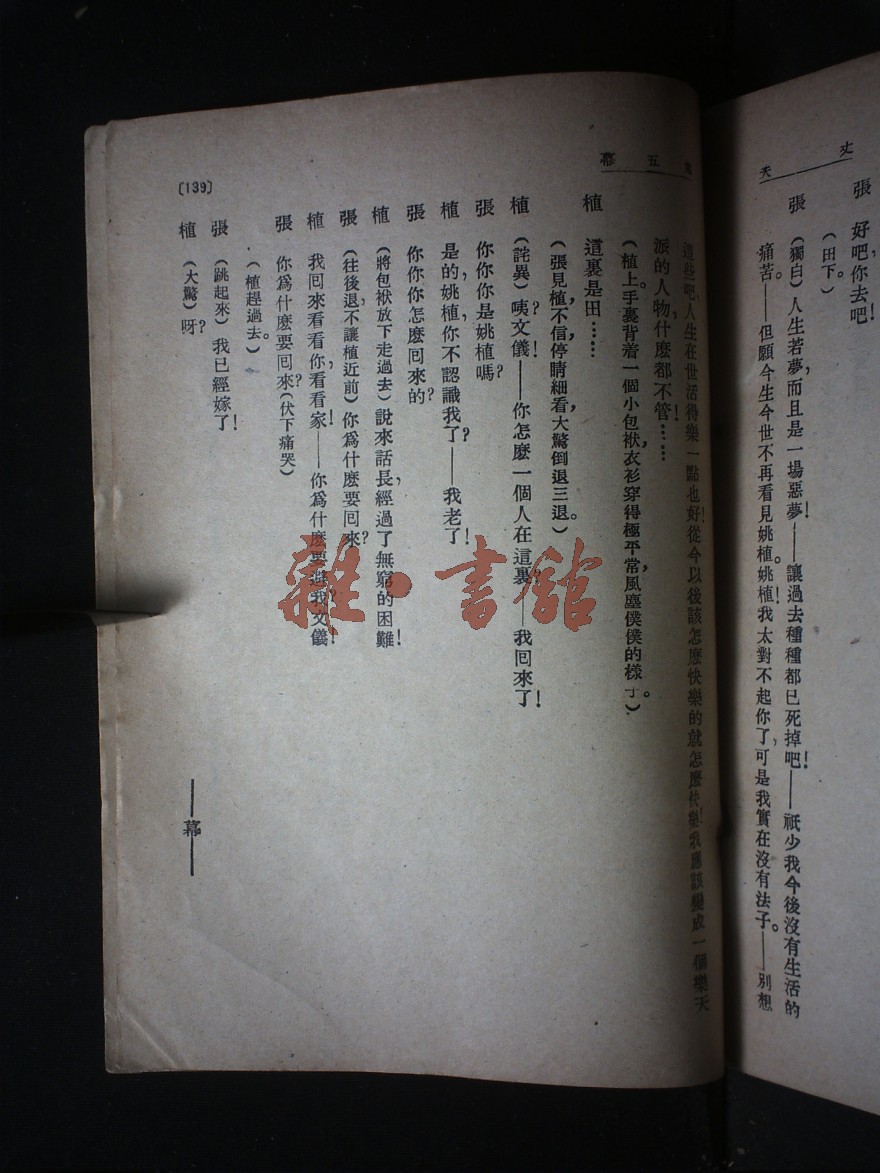 丈夫
張　好吧你去吧！
（田下。）
張　（獨白）人生若夢，而且是一場惡夢！——讓過去種種都已死掉吧！——祇少我今後沒有生活的
痛苦。——但願今生今世不再看見姚植。姚植！我太對不起你了，可是我實在沒有法子。——別想
五幕
這些吧人生在世活得樂一點也好！從今以後該怎麽快樂的就怎麽快樂！我應該變成一個樂天
派的人物，什麽都不管！……
（植上。手裏背着一個小包袱，衣衫穿得極平常，風塵僕僕的樣子。）
植　這裏是田……
（張見植，不信，停睛細看，大驚，倒退三退。）
植　（詫異）咦？文儀！——你怎麽一個人在這裏？——我回來了！
張　你你你是姚植嗎？
植　是的，姚植，你不認識我了？——我老了！
張　你你你怎麽回來的？
植　（將包袱放下走過去）說來話長，經過了無窮的困難！
張　（往後退，不讓植近前）你爲什麽要回來？
植　我回來看看你，看看家！——你爲什麽要避我？文儀！
張　你爲什麽要回來？（伏下痛哭）
（植趕過去。）
張　（跳起來）我已經嫁了！
植　（大驚）呀？
——幕——
〔139〕
雜·書館